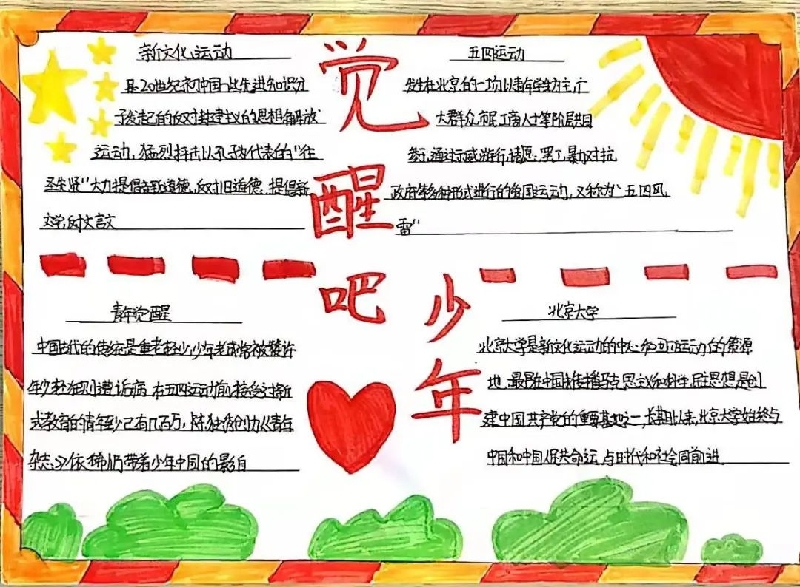 觉醒吧
少年
新文化运动
是20世纪初中国一些先进知识分
子发起的反对封建主义的思想解放
运动,猛烈抨击以孔子为代表的"往
圣先贤"大力提倡新道德,反对旧道德,提倡新
文学,反对文言文
五四运动
发生在北京的一场以青年学生为主,广
大群众,市民,工商人士等阶层共同
参与,通过示威游行,请愿,罢工,暴力对抗
政府等多种形式进行的爱国运动,又称为"五四风
雷"
青年觉醒
中国古代的传统是重老轻少,少年老成常被赞许
年少
遭诟病,在五四运动前,接受过新
式教育的青年至少已有几百万,陈独秀创办《青年
杂志》
带着少年中国的
北京大学
北京大学是新文化运动的中心和五四运动的策源
地,最早在中国传播马克思主义和科学,民主思想,是创
建中国共产党的重要基地之一,长期以来,北京大学始终与
中国和中国人民共命运,与时代和社会同前进